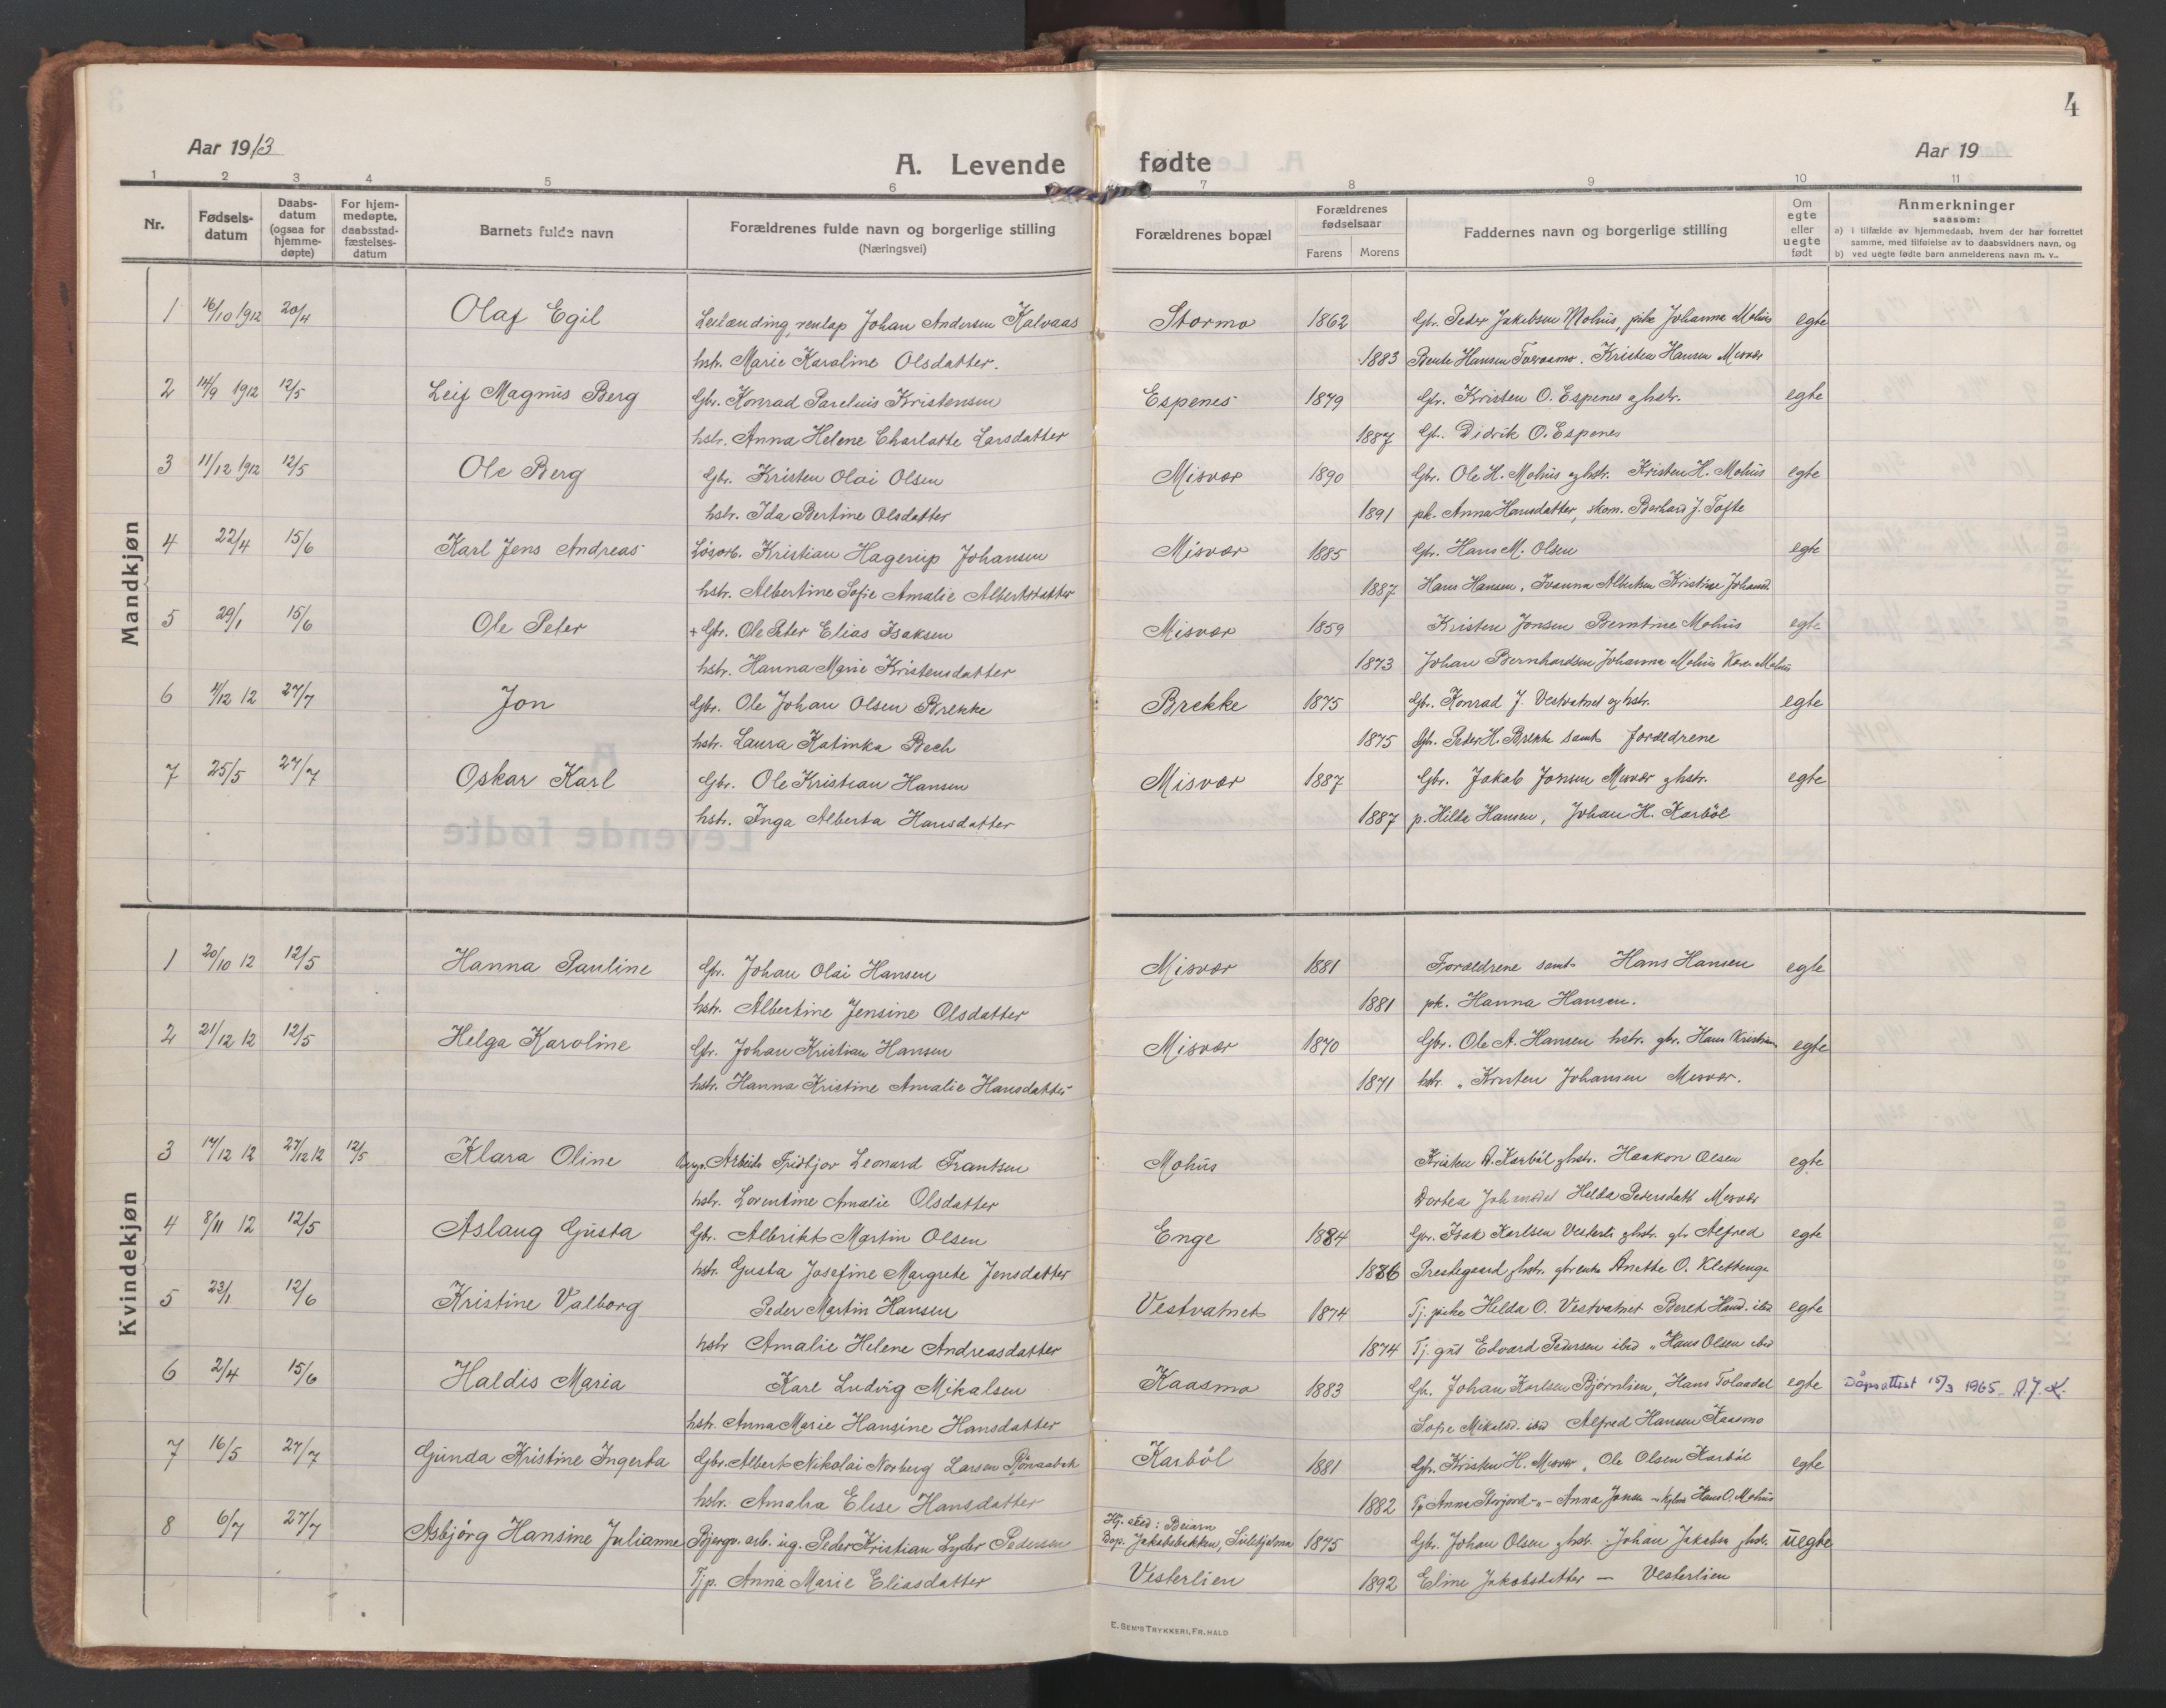 4
Aar 1913
A. Levende fødte
Aar 19
1 2 3 4 5 6 7 8 9 10 11
Nr.
Fødsels-
datum
Daabs-
datum
(ogsaa for
hjemme-
døpte)
For hjem-
medøpte,
daabsstad-
fæstelses-
datum
Barnets fulde navn
Forældrenes fulde navn og borgerlige stilling
(Næringsvei)
Forældrenes bopæl
Forældrenes
fødselsaar
Farens Morens
Faddernes navn og borgerlige stilling
Om
egte
eller
uegte
født
Anmerkninger
saasom:
a) i tilfælde av hjemmedaab, hvem der har forrettet
samme, med tilføielse av to daabsvidners navn, og
b) ved uegte fødte barn anmelderens navn m. v..
Mandkjøn
1 16/10 1912 20/4 Olaf Egil Leilænding, renlap Johan Andersen Kalvaas Stormo 1862 Gbr. Peder Jakobsen Mohus, pike Johanna Mohus egte
hstr. Marie Karoline Olsdatter. 1883 Bente Hansen . Kristen Hansen Misvær
2 14/9 1912 12/5 Leif Magnus Berg Gbr. Konrad Pareluis Kristensen Espenes 1879 Gbr. Kristen O. Espenes og hstr. egte
hstr. Anna Helene Charlotte Larsdatter 1887 Gbr. Didrik O. Espenes
3 11/12 1912 12/5 Ole Berg Gbr. Kristen Olai Olsen Misvær 1890 Gbr. Ole H. Mohus og hstr. Kristen H. Mohus egte
hstr. Ida Bertine Olsdatter 1891 pk. Anna Hansdatter, skom. Berhard J. Tofte
4 22/4 15/6 Karl Jens Andreas Løsarb. Kristian Hagerup Johansen Misvær 1885 Gbr. Hans M. Olsen egte
hstr. Albertine Sofie Amalie Albertsdatter 1887 Hans Hansen, Ivanna Albertsen Kristine Johansd.
5 29/1 15/6 Ole Peter + Gbr. Ole Peter Elias Isaksen Misvær 1859 Kristen Jonsen Berntine Mohus egte
hstr. Hanna Marie Kristensdatter 1873 Johan Bernhardsen Johanna Mohus Karen Mohus
6 4/12 12 27/7 Jon Gbr. Ole Johan Olsen Brekke Brekke 1875 Gbr. Konrad J. Vestvatnet og hstr. egte
hstr. Laura Katinka Bech 1875 Gbr. Peder H. Brekke samt forældrene
7 25/5 27/7 Oskar Karl Gbr. Ole Kristian Hansen Misvær 1887 Gbr. Jakob Jonsen Misvær g hstr. egte
hstr. Inga Alberta Hansdatter 1887 p. Hilda Hansen, Johan H. Karbøl
Kvindekjøn
1 20/10 12 12/5 Hanna Pauline Gbr. Johan Olai Hansen Misvær 1881 Forældrene samt Hans Hansen egte
hstr. Albertine Jensine Olsdatter 1881 pk. Hanna Hansen.
2 21/12 12 12/5 Helga Karoline Gbr. Johan Kristian Hansen Misvær 1870 Gbr. Ole A. Hansen hstr. gbr. Hans Kristian egte
hstr. Hanna Kristine Amalie Hansdatter 1871 hstr. " Kristen Johansen Misvær.
3 17/12 12 27/12 12 12/5 Klara Oline Bergv. Arbeider Fridtjov Leonard Frantsen Mohus Kristen A. Karbøl g hstr. Haakon Olsen egte
hstr. Lorentine Amalie Olsdatter Dortea Johansdat Helda Pedersdatt Misvær
4 8/11 12 12/5 Aslaug Gusta Gbr. Albrikt Martin Olsen Enge 1884 Gbr. Isak Karlsen g hstr. gbr Alfred egte
hstr. Gusta Josefine Margrete Jensdatter 1886 Prestegaard g hstr. gbrenke Anette O. Klettenge
5 23/1 12/6 Kristine Valborg Peder Martin Hansen Vestvatnet 1874 Tj. pike Helda O. Vestvatnet Beret Hansd. ibid egte
hstr Amalie Helene Andreasdatter 1874 Tj. gut Edvard Pedersen ibid " Hans Olsen ibid
6 2/4 15/6 Haldis Maria Karl Ludvig Mikalsen Kaasmo 1883 Gbr. Johan Karlsen Bjørnlien, Hans Tolaadal egte Dåpsattest 15/3 1965. A.J.K.
hstr. Anna Marie Hansine Hansdatter Sofie Mikalsd. ibid Alfred Hansen Kaasmo
7 16/5 27/7 Gunda Kristine Ingerta Gbr. Albert Nikolai Norberg Larsen Karbøl 1881 Gbr. Kristen H. Misvær, Ole Olsen Karbøl egte
hstr. Amalia Elise Hansdatter 1882 Tp Anna Storjord -"- Anna Jonsen - Hans O. Mohus
8 6/7 27/7 Asbjørg Hansine Julianne Bjergv. arb. ug. Peder Kristian Lyder Pedersen Hj. sted: Beiarn
Bop. Jakobsbakken, Sulitjelma 1875 Gbr. Johan Olsen g hstr. : Johan Jakobsen g hstr. uegte
Tjp. Anna Marie Eliasdatter Vesterlien 1892 Eline Jakobsdatter — Vesterlien
E. SEM'S TRYKKERI, FR.HALD